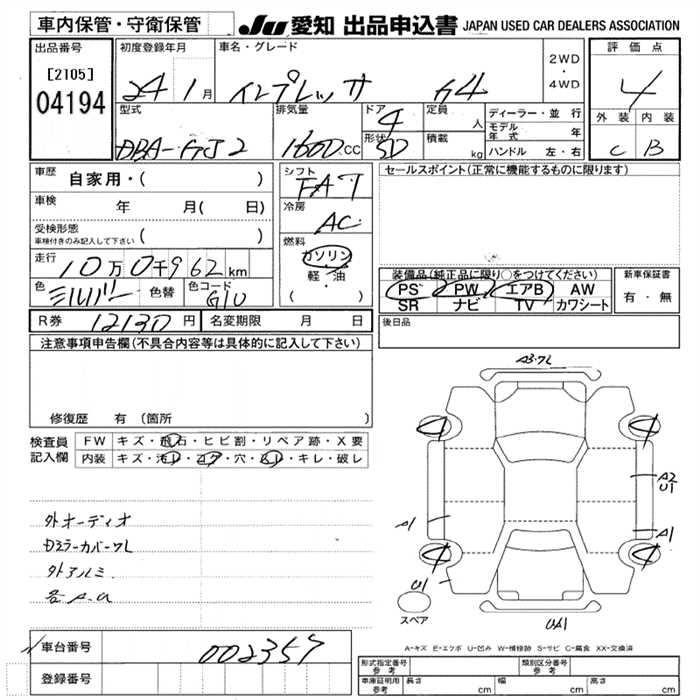 車内保管・守衛保管
JU 愛知 出品申込書 JAPAN USED CAR DEALERS ASSOCIATION
出品番号
[2105]
04194
初度登録年月
24 1月
車名・グレード
インプレッサ G4
2WD
・
4WD
評価点
4
外装 内装
C B
型式
DBA-GJ2
排気量
1600cc
ドア 4
形状 5D
定員 人
積載 kg
ディーラー・並行
モデル年式 年
ハンドル 左・右
車歴 自家用・( )
車検 年 月( 日)
受検形態
車検付きのみ記入して下さい ( )
走行 10万0千962km
色 シルバー 色替 色コード G1U
シフト FAT
冷房 AC
燃料
ガソリン
軽・油
( )
セールスポイント(正常に機能するものに限ります)
装備品(純正品に限り○をつけてください)
PS PW エアB AW
SR ナビ TV カワシート
新車保証書
有・無
R券 12130円 名変期限 月 日
後日品
注意事項申告欄(不具合内容等は具体的に記入して下さい)
修復歴 有 (箇所 )
検査員記入欄
FW キズ・飛石・ヒビ割・リペア跡・X要
内装 キズ・汚レ・コゲ・穴・スレ・キレ・破レ
外オーディオ
Dミラーカバーワレ
外アルミ
各A.U
A3・ワレ
4 4
A2
U1
A1 A1
4 4
U1
UA1
スペア
A-キズ E-エクボ U-凹み W-補修跡 S-サビ C-腐食 XX-交換済
車台番号 002357
登録番号
形式指定番号 参考
類別区分番号 参考
車庫証明用 参考 長さ cm 幅 cm 高さ cm